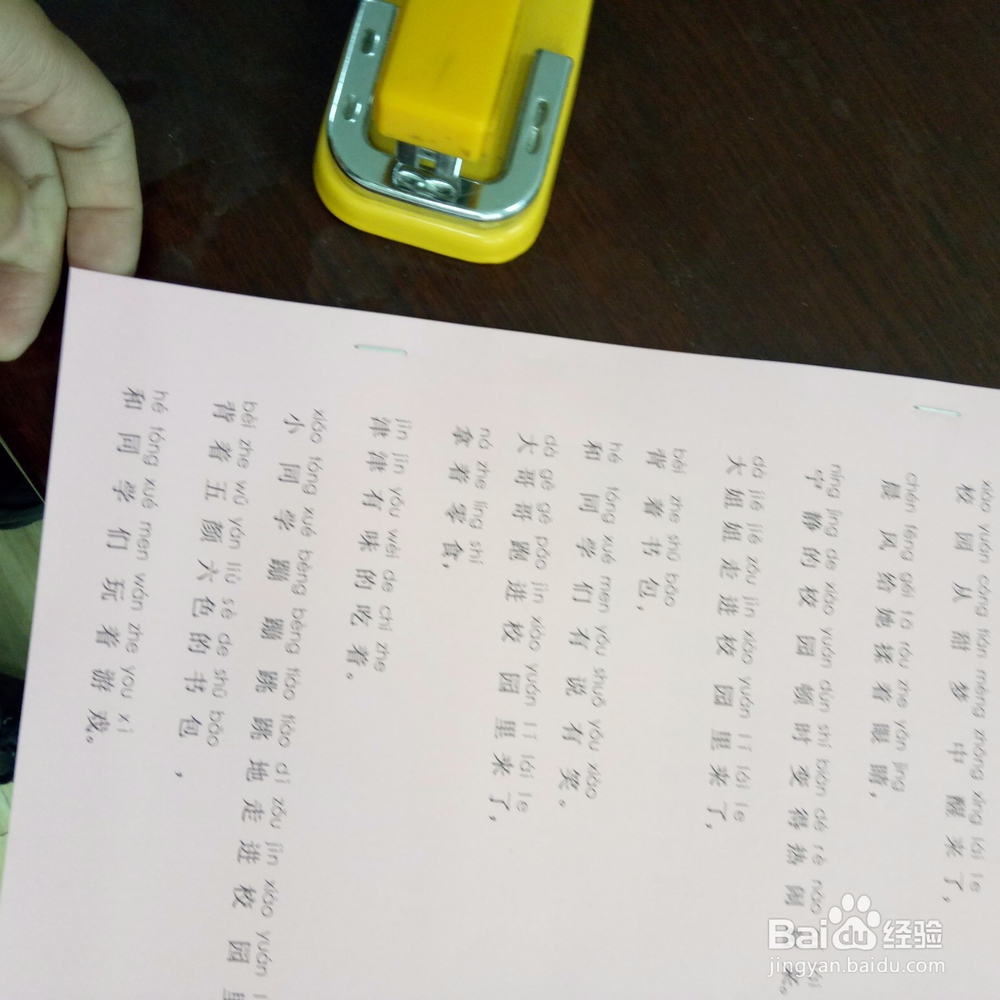 xiào yuán cóng tián mèng zhōng xǐng lái le
校园从甜梦中醒来了，
chén fēng gěi tā róu zhe yǎn jīng
晨风给她揉着眼睛，
níng jìng de xiào yuán dùn shí biàn dé rè nào
宁静的校园顿时变得热闹 来。
dà jiě jiě zǒu jìn xiào yuán lǐ lái le
大姐姐走进校园里来了，
bēi zhe shū bāo
背着书包，
hé tóng xué men yǒu shuō yǒu xiào
和同学们有说有笑。
dà gē gē pǎo jìn xiào yuán lǐ lái le
大哥哥跑进校园里来了，
ná zhe líng shí
拿着零食，
jīn jīn yǒu wèi de chī zhe
津津有味的吃着。
xiǎo tóng xué bèng bèng tiào tiào dì zǒu jìn xiào yuán
小同学蹦蹦跳跳地走进校园里
bēi zhe wǔ yán liù sè de shū bāo
背着五颜六色的书包，
hé tóng xué men wán zhe yóu xì
和同学们玩着游戏。
Baidu经验
jingyan.baidu.com